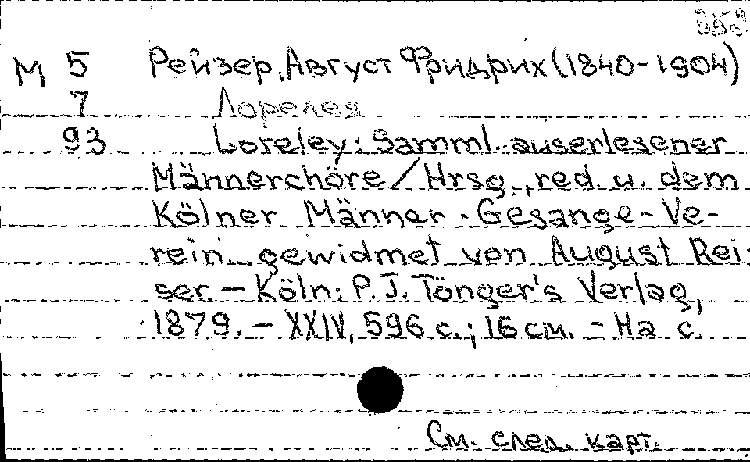 М 5 Рейзер, Август Фридрих (1840-1904)
7 Лорелея
93 Loreley: Samml. auserlesener
Männerchöre / Hrsg., red. u. dem
Kölner Männer-Gesange-Ve-
rein gewidmet von August Rei-
ser. - Köln: P. J. Tonger's Verlag,
1879. - XXIV, 596 с.; 16 см. - На с.
См. след. карт.